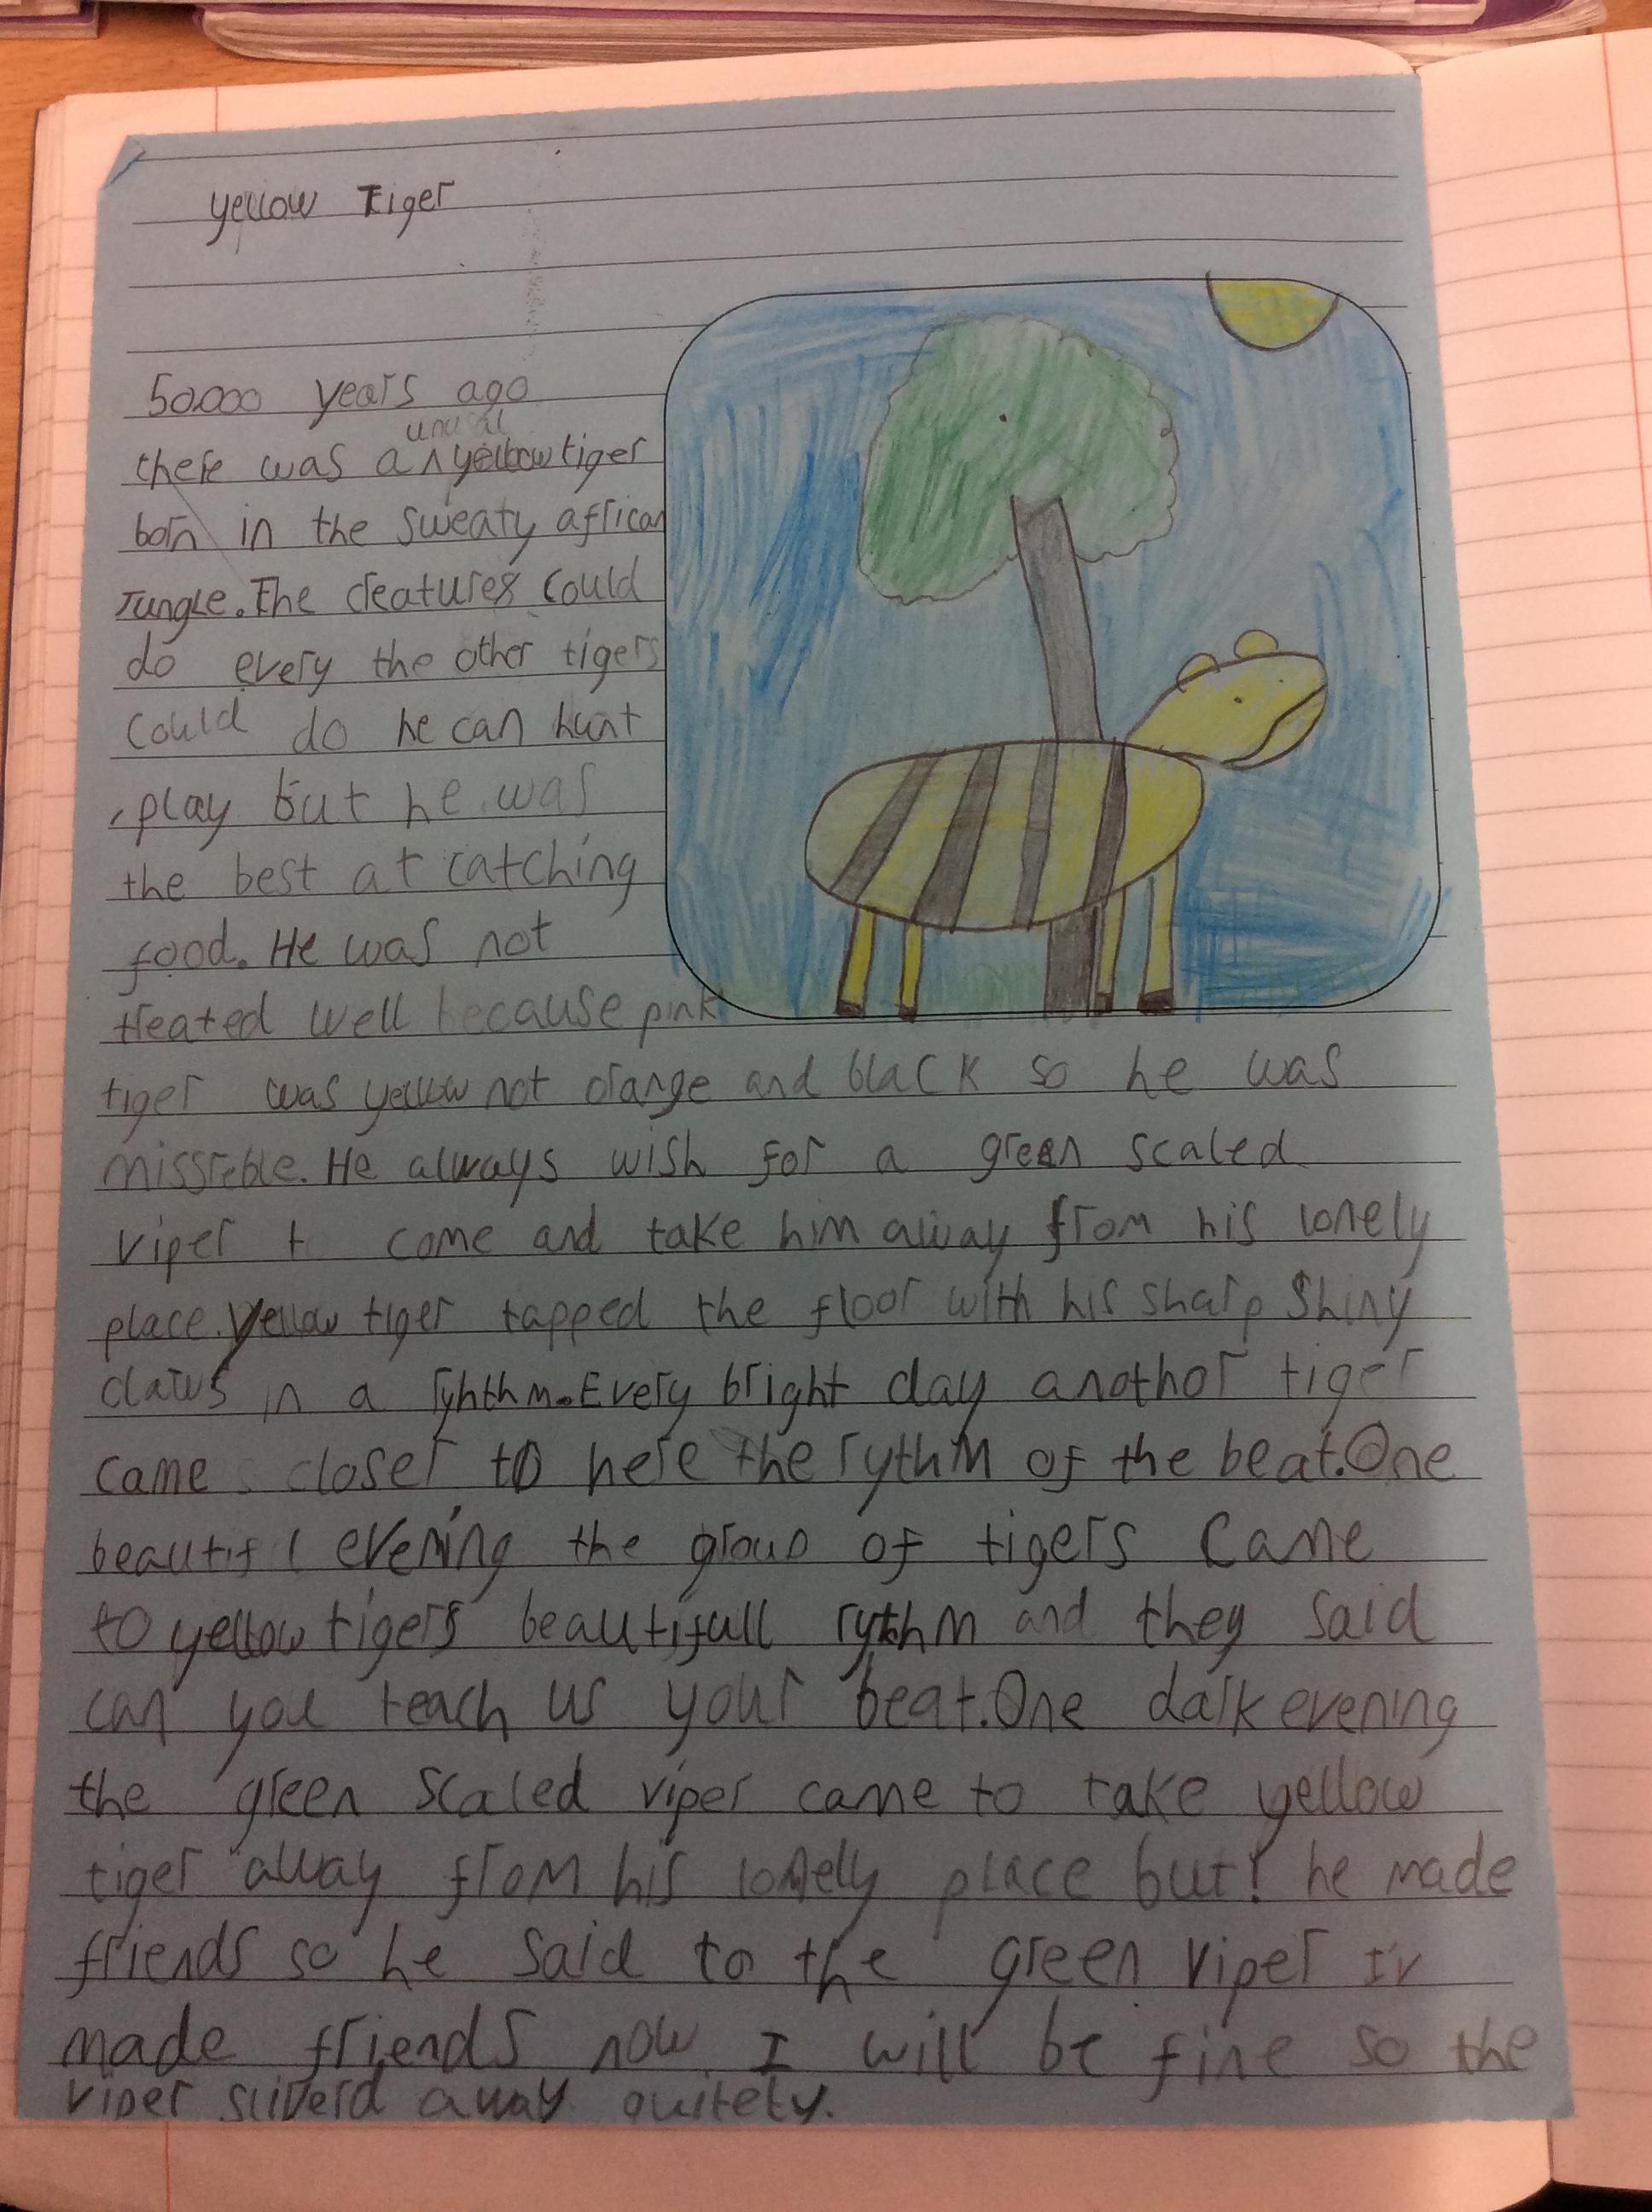 yellow Tiger
50000 years ago
there was a ^ yellow tiger
born in the sweaty african
Jungle. The creatures could
do every the other tigers
could do he can hunt
, play but he was
the best at catching
food. He was not
treated well because pink
tiger was yellow not orange and black so he was
missreble. He always wish for a green scaled
viper t come and take him away from his lonely
place. Yellow tiger tapped the floor with his sharp shiny
claws in a ryhthm. Every bright day anothor tiger
came closer to here the rythm of the beat. One
beautifl evening the group of tigers came
to yellow tigers beautifull rythm and they said
can you teach us your beat. One dark evening
the green scaled viper came to take yellow
tiger away from his lonely place but! he made
friends so he said to the green viper I'v
made friends now I will be fine so the
viper sliverd away quitety.